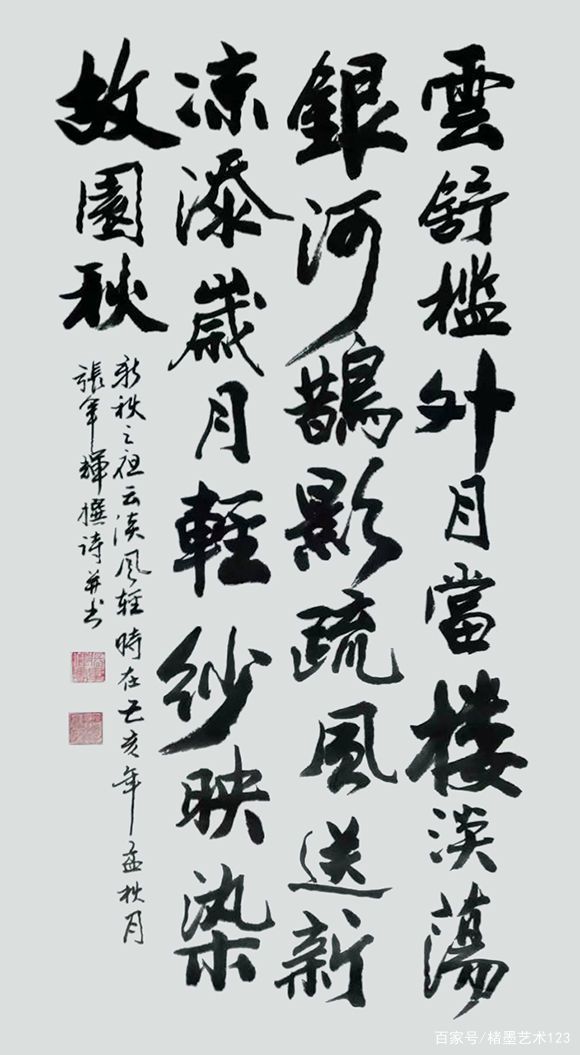 雲舒槛外月當楼淡蕩
銀河鵲影疏風送新
凉添歲月輕紗映染
故園秋
新秋之云淡风輕時在己亥年孟秋月
張輝撰诗并书
百家号/楮墨艺术123